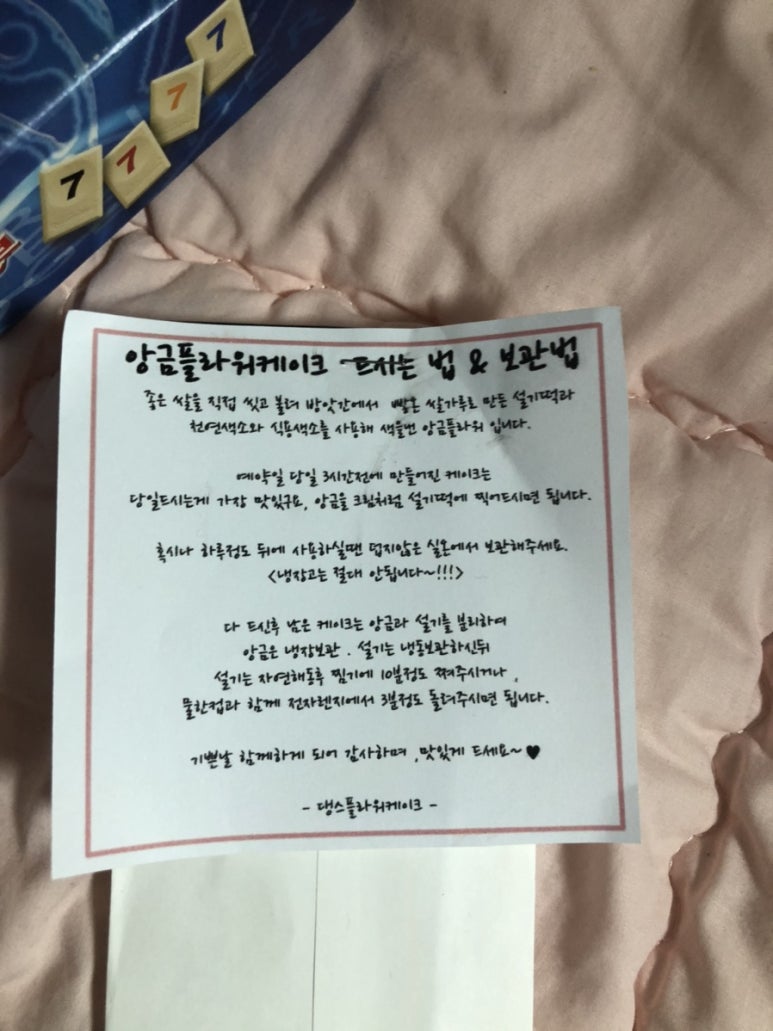 7
7
7
7
앙금플라워케이크 드시는 법 & 보관법
좋은 쌀을 직접 씻고 불려 방앗간에서 빻은 쌀가루로 만든 설기떡과
천연색소와 식용색소를 사용해 색을낸 앙금플라워 입니다.
예약일 당일 3시간전에 만들어진 케이크는
당일드시는게 가장 맛있구요, 앙금을 크림처럼 설기떡에 찍어드시면 됩니다.
혹시나 하루정도 뒤에 사용하실땐 덥지않은 실온에서 보관해주세요.
<냉장고는 절대 안됩니다~!!!>
다 드신후 남은 케이크는 앙금과 설기를 분리하여
앙금은 냉장보관 . 설기는 냉동보관하신뒤
설기는 자연해동후 찜기에 10분정도 쪄주시거나,
물한컵과 함께 전자렌지에서 3분정도 돌려주시면 됩니다.
기쁜날 함께하게 되어 감사하며 ,맛있게 드세요~♥
- 댕스플라워케이크 -